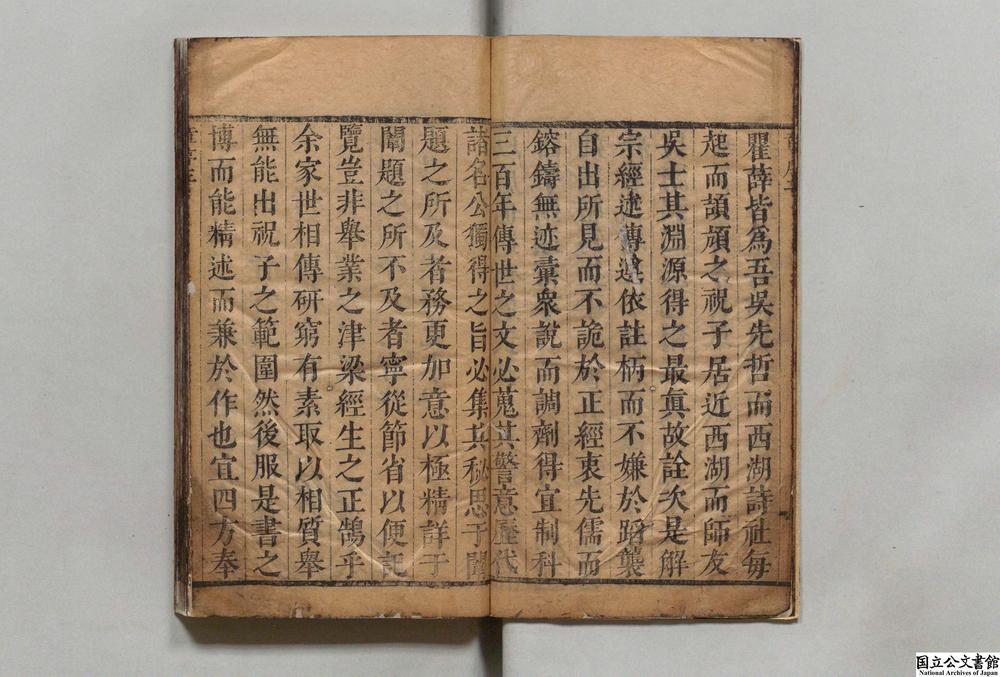 瞿薛皆為吾吳先哲而西湖詩社每
起而頡頏之祝子居近西湖而師友
吳士其淵源得之最眞故詮次是解
宗經述傳遵依註柄而不嫌於蹈襲
自出所見而不詭於正經衷先儒而
鎔鑄無迹彙衆說而調劑得宜制科
三百年傳世之文必蒐其警意歷代
諸名公獨得之旨必集其秘思于闈
題之所及者務更加意以極精詳于
闈題之所不及者寧從節省以便記
覽豈非舉業之津梁經生之正鵠乎
余家世相傳研窮有素取以相質舉
無能出祝子之範圍然後服是書之
博而能精述而兼於作也宜四方奉
国立公文書館
National Archives of Japan